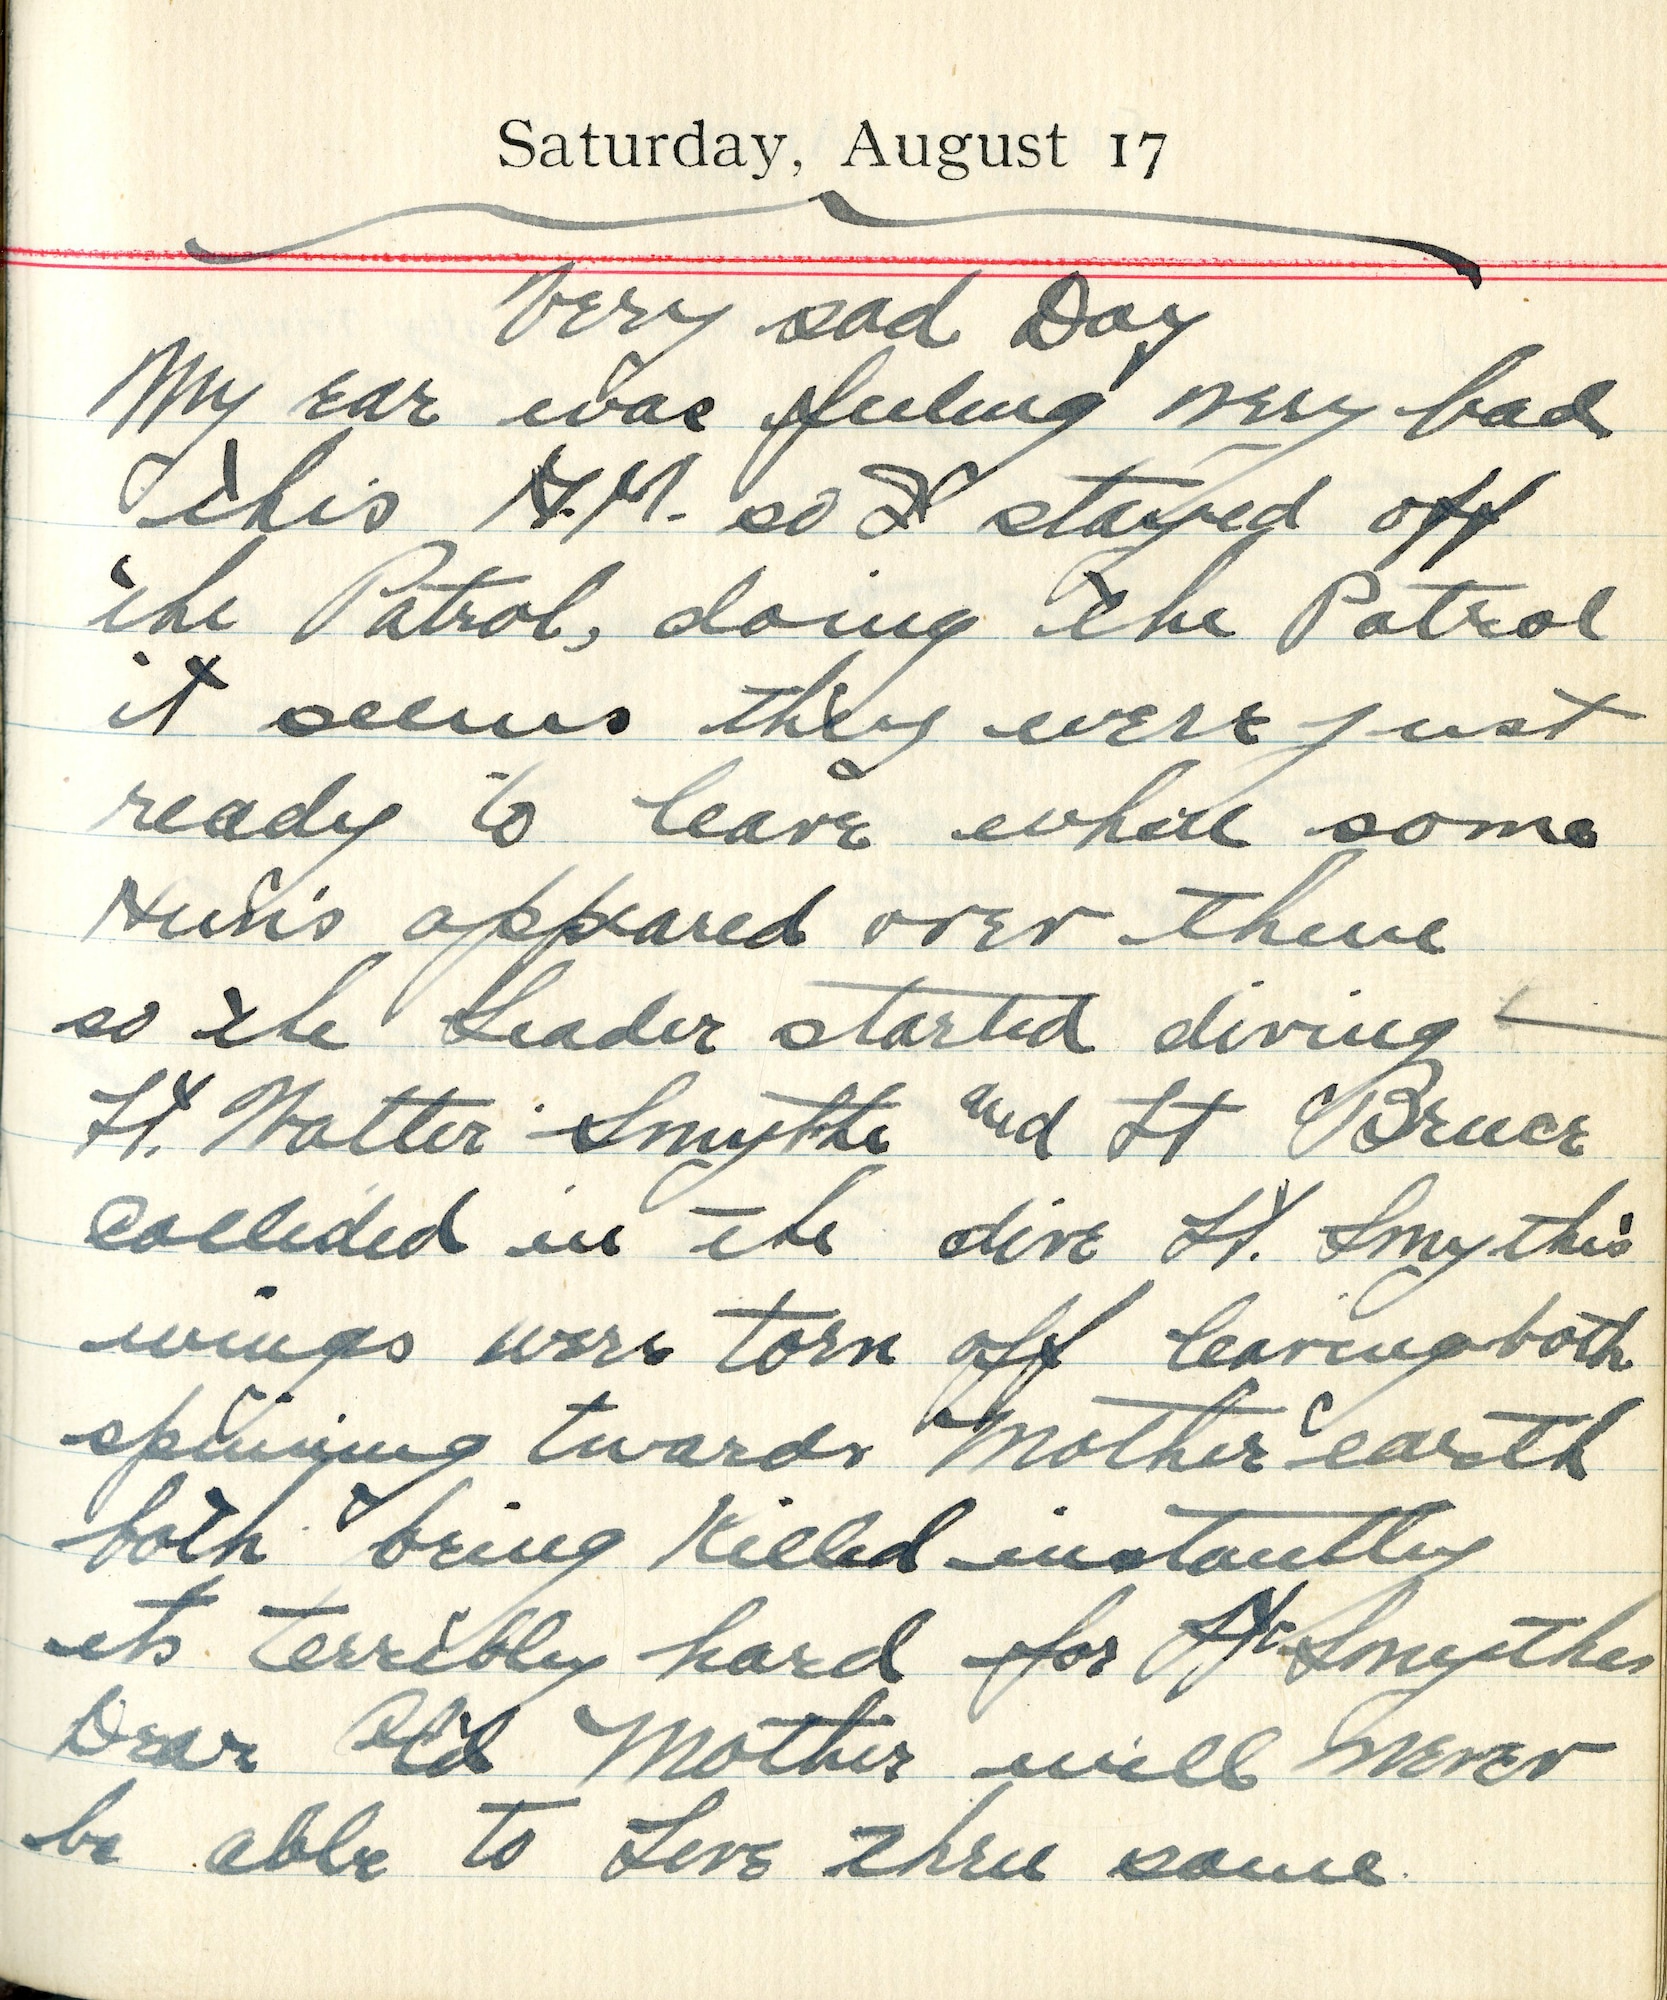 Saturday, August 17
Very sad Day
My ear was feeling very bad
this A.M. so I stayed off
the Patrol, doing the Patrol
it seems they were just
ready to leave when some
Huns appeared over them
so the Leader started diving
Lt. Walter Smythe and Lt Bruce
Collided in the dive Lt. Smythis
wings were torn off leaving both
spinning twards Mother earth
both being Killed instantly
its terribly hard for Lt. Smythes
Dear Old Mother will never
be able to Live thru same.